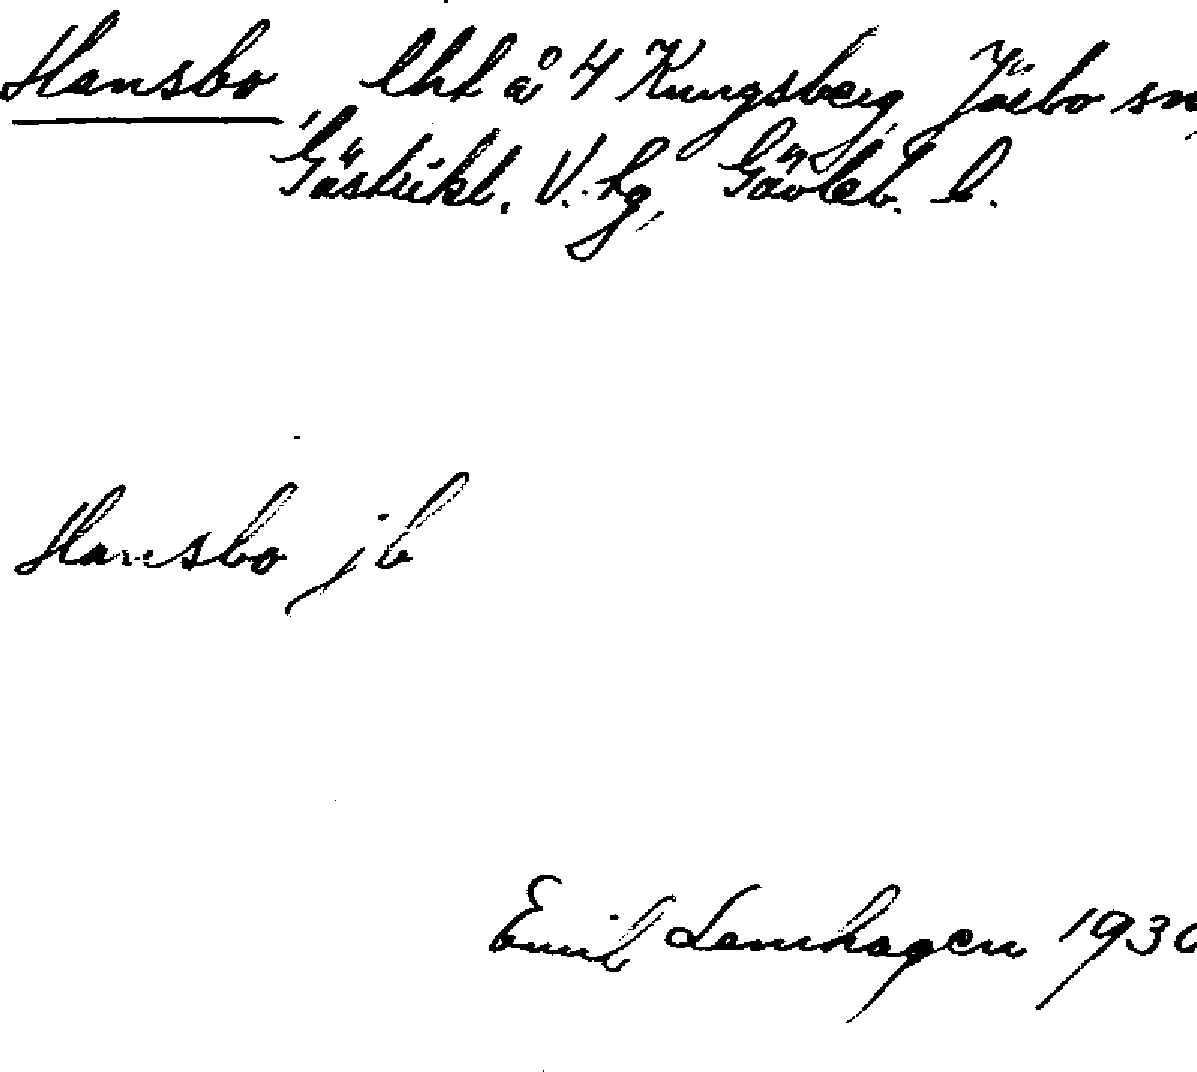 Hansbo lht å 4 Kungsberg, Järbo sn,
Gästrikl. V. hg, Gävleb. l.
Hansbo jb
Emil Lenhagen 1930